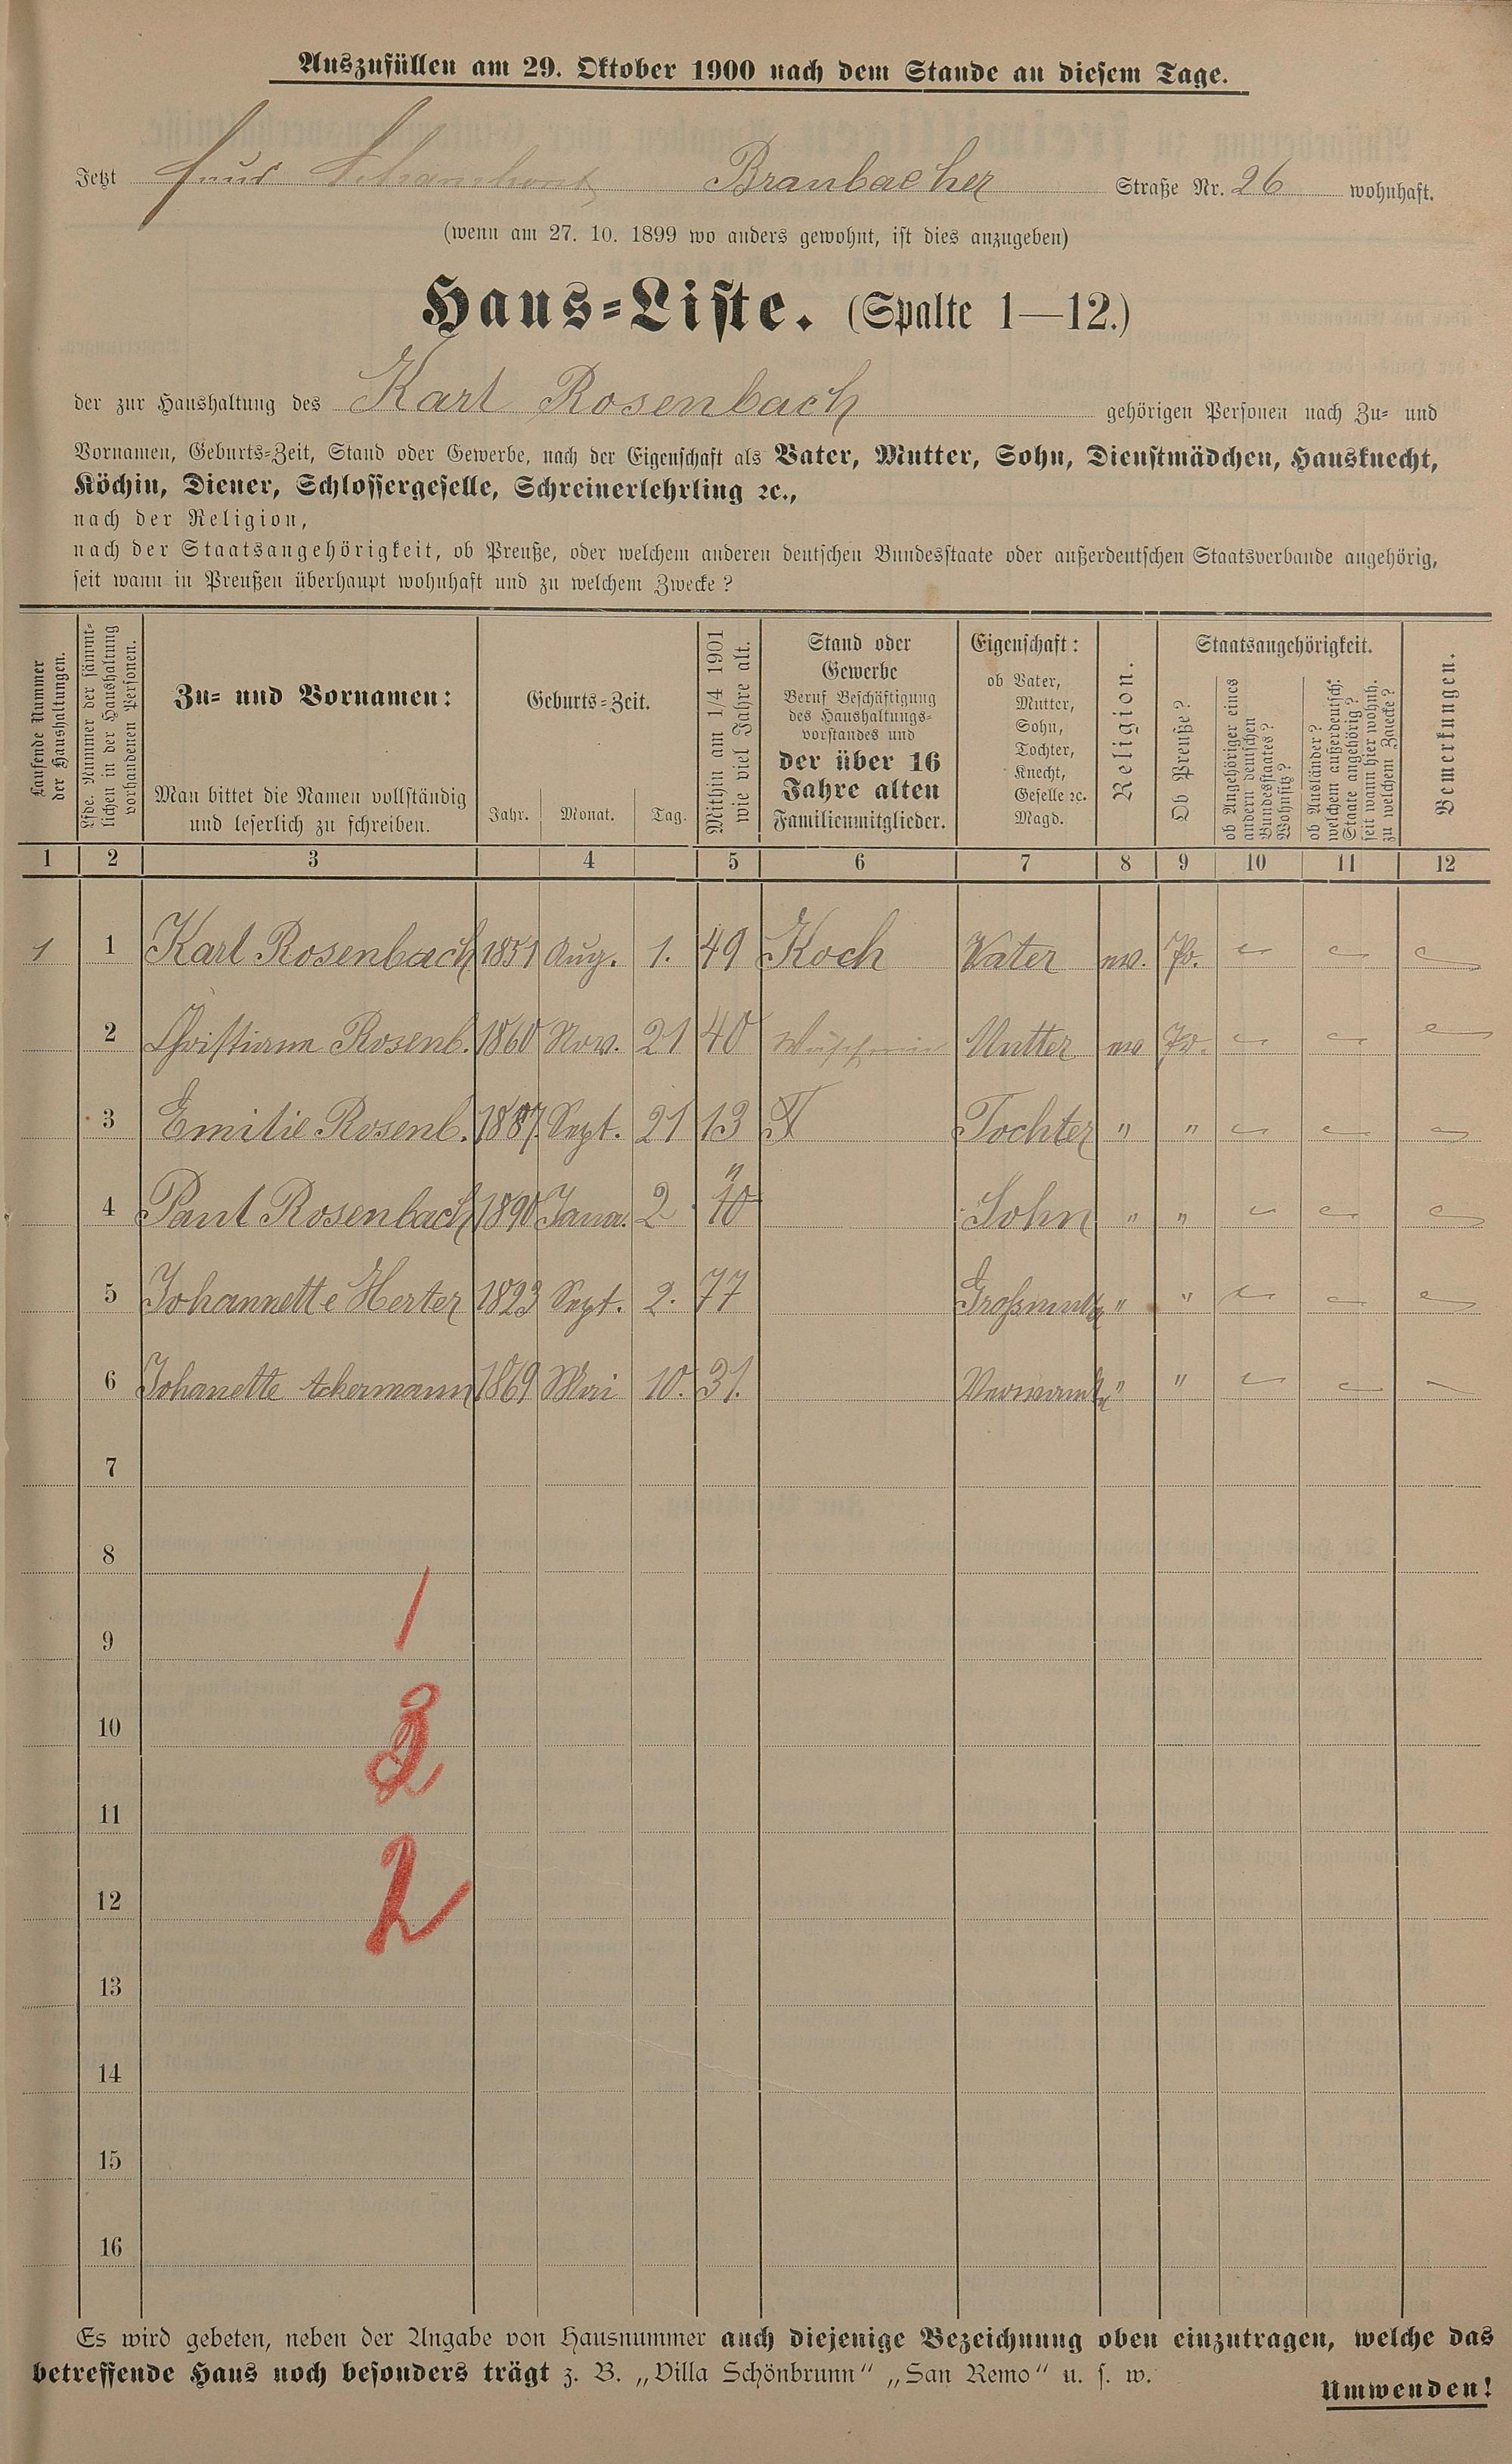 Auszufüllen am 29. Oktober 1900 nach dem Stande an diesem Tage.
Jetzt Haus Braubacher Straße Nr. 26 wohnhaft.
(wenn am 27. 10. 1899 wo anders gewohnt, ist dies anzugeben)
Haus-Liste. (Spalte 1—12.)
der zur Haushaltung des Karl Rosenbach gehörigen Personen nach Zu- und
Vornamen, Geburts-Zeit, Stand oder Gewerbe, nach der Eigenschaft als Vater, Mutter, Sohn, Dienstmädchen, Hausknecht,
Köchin, Diener, Schlossergeselle, Schreinerlehrling ꝛc.,
nach der Religion,
nach der Staatsangehörigkeit, ob Preuße, oder welchem anderen deutschen Bundesstaate oder außerdeutschen Staatsverbande angehörig,
seit wann in Preußen überhaupt wohnhaft und zu welchem Zwecke?
Laufende Nummer
der Haushaltungen.
Lfde. Nummer der sämmt-
lichen in der Haushaltung
vorhandenen Personen.
Zu- und Vornamen:
Man bittet die Namen vollständig
und leserlich zu schreiben.
Geburts-Zeit.
Jahr. Monat. Tag.
Mithin am 1/4 1901
wie viel Jahre alt.
Stand oder
Gewerbe
Beruf Beschäftigung
des Haushaltungs-
vorstandes und
der über 16
Jahre alten
Familienmitglieder.
Eigenschaft:
ob Vater,
Mutter,
Sohn,
Tochter,
Knecht,
Geselle ꝛc.
Magd.
Religion.
Staatsangehörigkeit.
Ob Preuße?
ob Angehöriger eines
andern deutschen
Bundesstaates?
Wohnsitz?
ob Ausländer?
welchem außerdeutsch.
Staate angehörig?
seit wann hier wohnh.
zu welchem Zwecke?
Bemerkungen.
1 2 3 4 5 6 7 8 9 10 11 12
1 1 Karl Rosenbach 1851 Aug. 1. 49 Koch Vater ev. Pr.
2 Christiane Rosenb. 1860 Nov. 21 40 Mutter ev Pr.
3 Emilie Rosenb. 1887 Sept. 21 13 Tochter " "
4 Paul Rosenbach 1890 Janu. 2. 10 Sohn " "
5 Johannette Herter 1823 Sept. 2. 77 Großmutter " "
6 Johanette Ackermann 1869 Mai 10. 31. Verwandte " "
7
8
9
1
10
3
11
12
2
13
14
15
16
Es wird gebeten, neben der Angabe von Hausnummer auch diejenige Bezeichnung oben einzutragen, welche das
betreffende Haus noch besonders trägt z. B. „Villa Schönbrunn“ „San Remo“ u. s. w.
Umwenden!